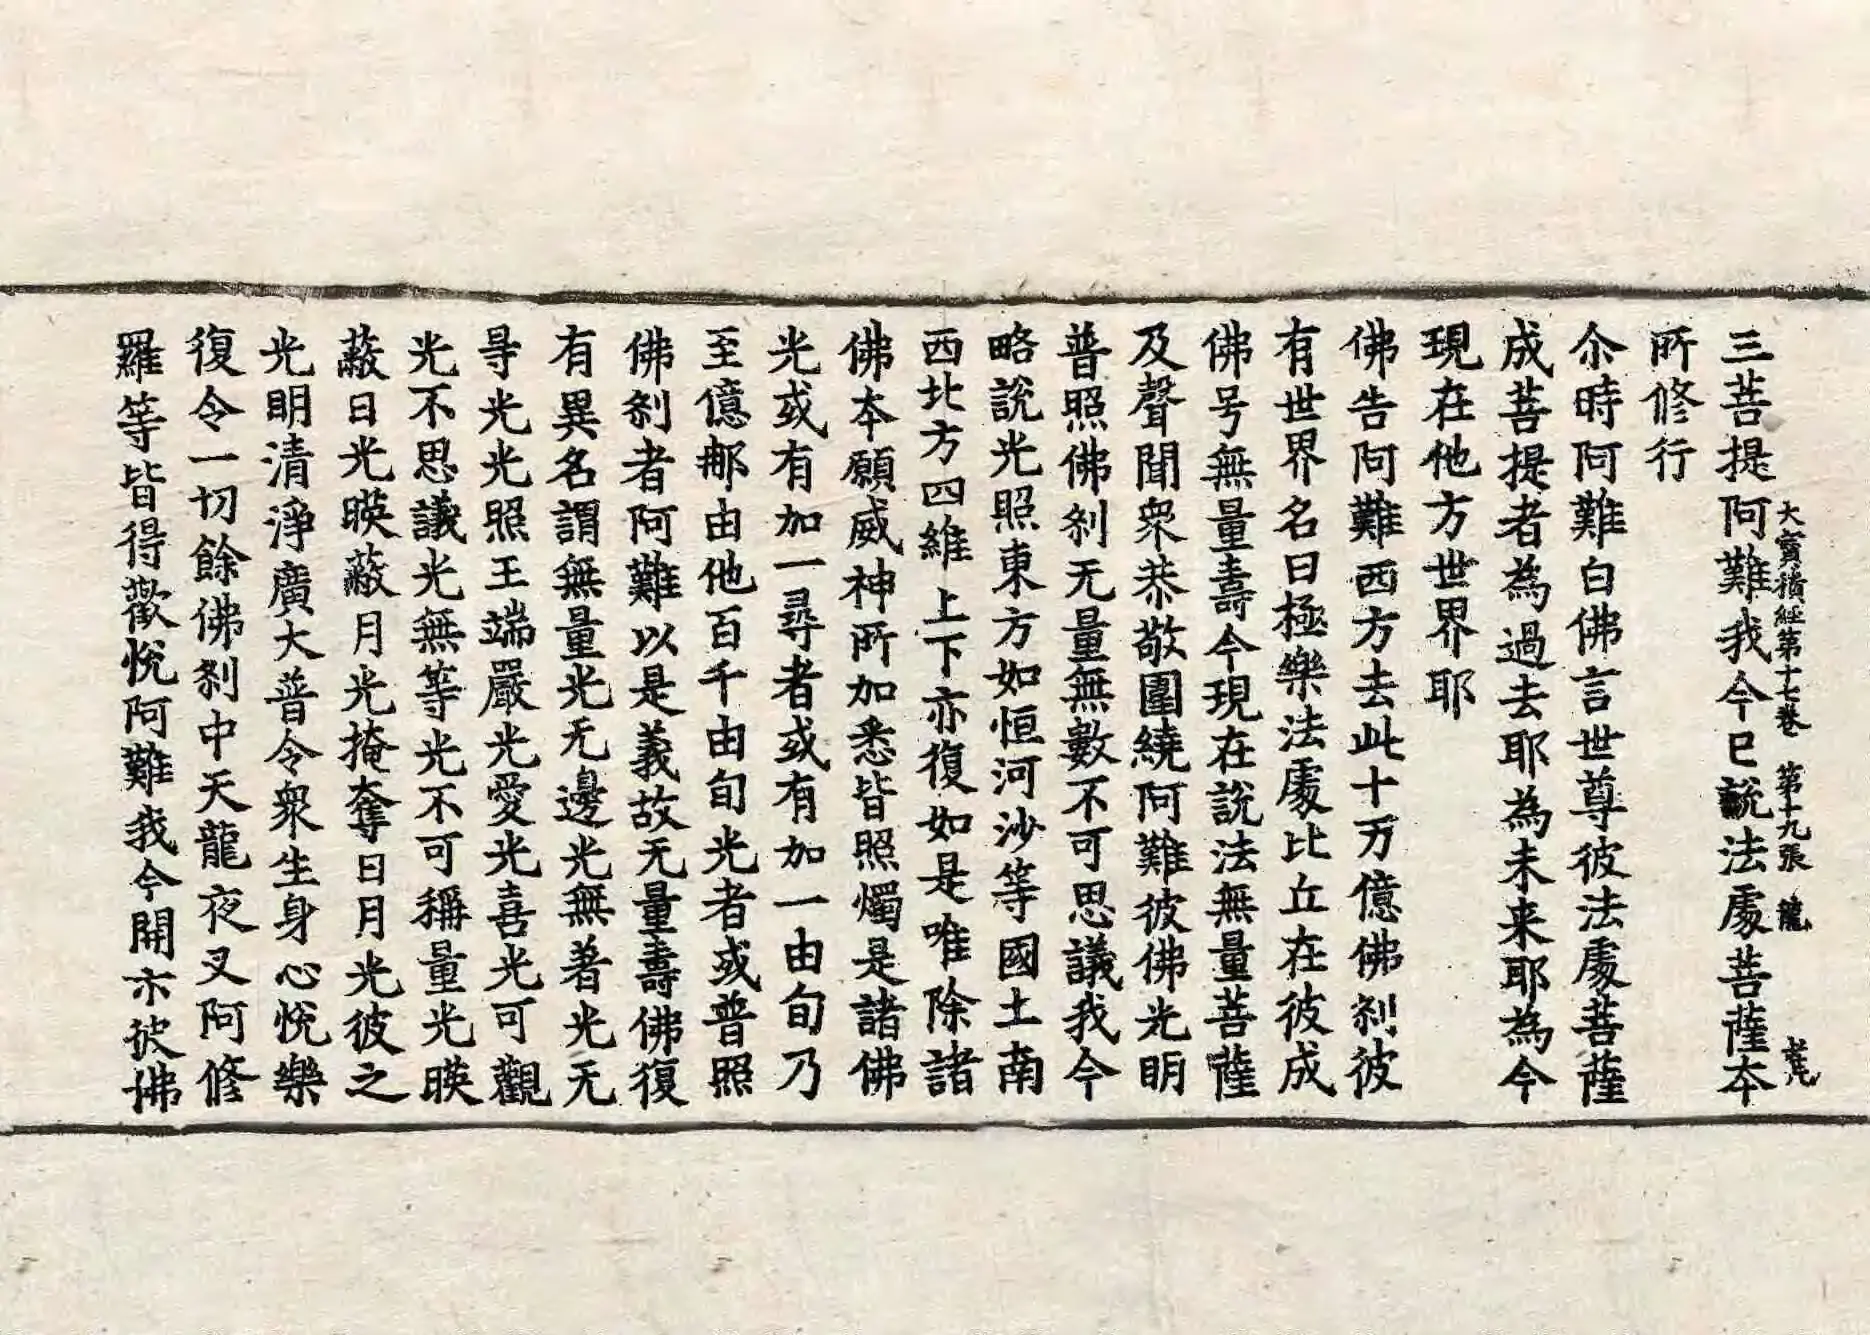 大寶積經第十七卷 第十九張 龍
三菩提阿難我今已說法處菩薩本
所修行
尒時阿難白佛言世尊彼法處菩薩
成菩提者為過去耶為未来耶為今
現在他方世界耶
佛告阿難西方去此十万億佛刹彼
有世界名曰極樂法處比丘在彼成
佛号無量壽今現在說法無量菩薩
及聲聞衆恭敬圍繞阿難彼佛光明
普照佛刹无量無數不可思議我今
略說光照東方如恒河沙等國土南
西北方四維上下亦復如是唯除諸
佛本願威神所加悉皆照燭是諸佛
光或有加一尋者或有加一由旬乃
至億那由他百千由旬光者或普照
佛刹者阿難以是義故无量壽佛復
有異名謂無量光无邊光無著光无
㝵光光照王端嚴光愛光喜光可觀
光不思議光無等光不可稱量光暎
蔽日光暎蔽月光掩奪日月光彼之
光明清淨廣大普令衆生身心悅樂
復令一切餘佛刹中天龍夜叉阿修
羅等皆得歡悅阿難我今開示彼佛